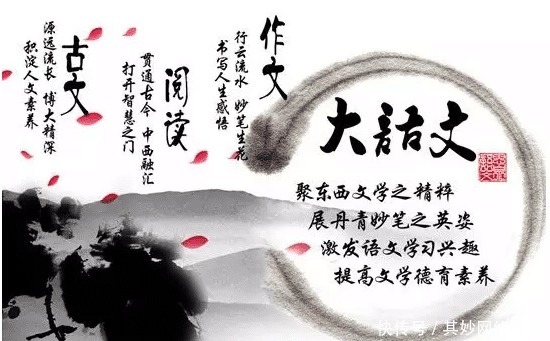 作文
行云流水 妙笔生花
书写人生感悟
阅读
贯通古今 中西融汇
打开智慧之门
古文
源远流长 博大精深
积淀人文素养
大語文
聚东西文学之精粹
展丹青妙笔之英姿
激发语文学习兴趣
提高文学德育素养
快传号 / 其妙网